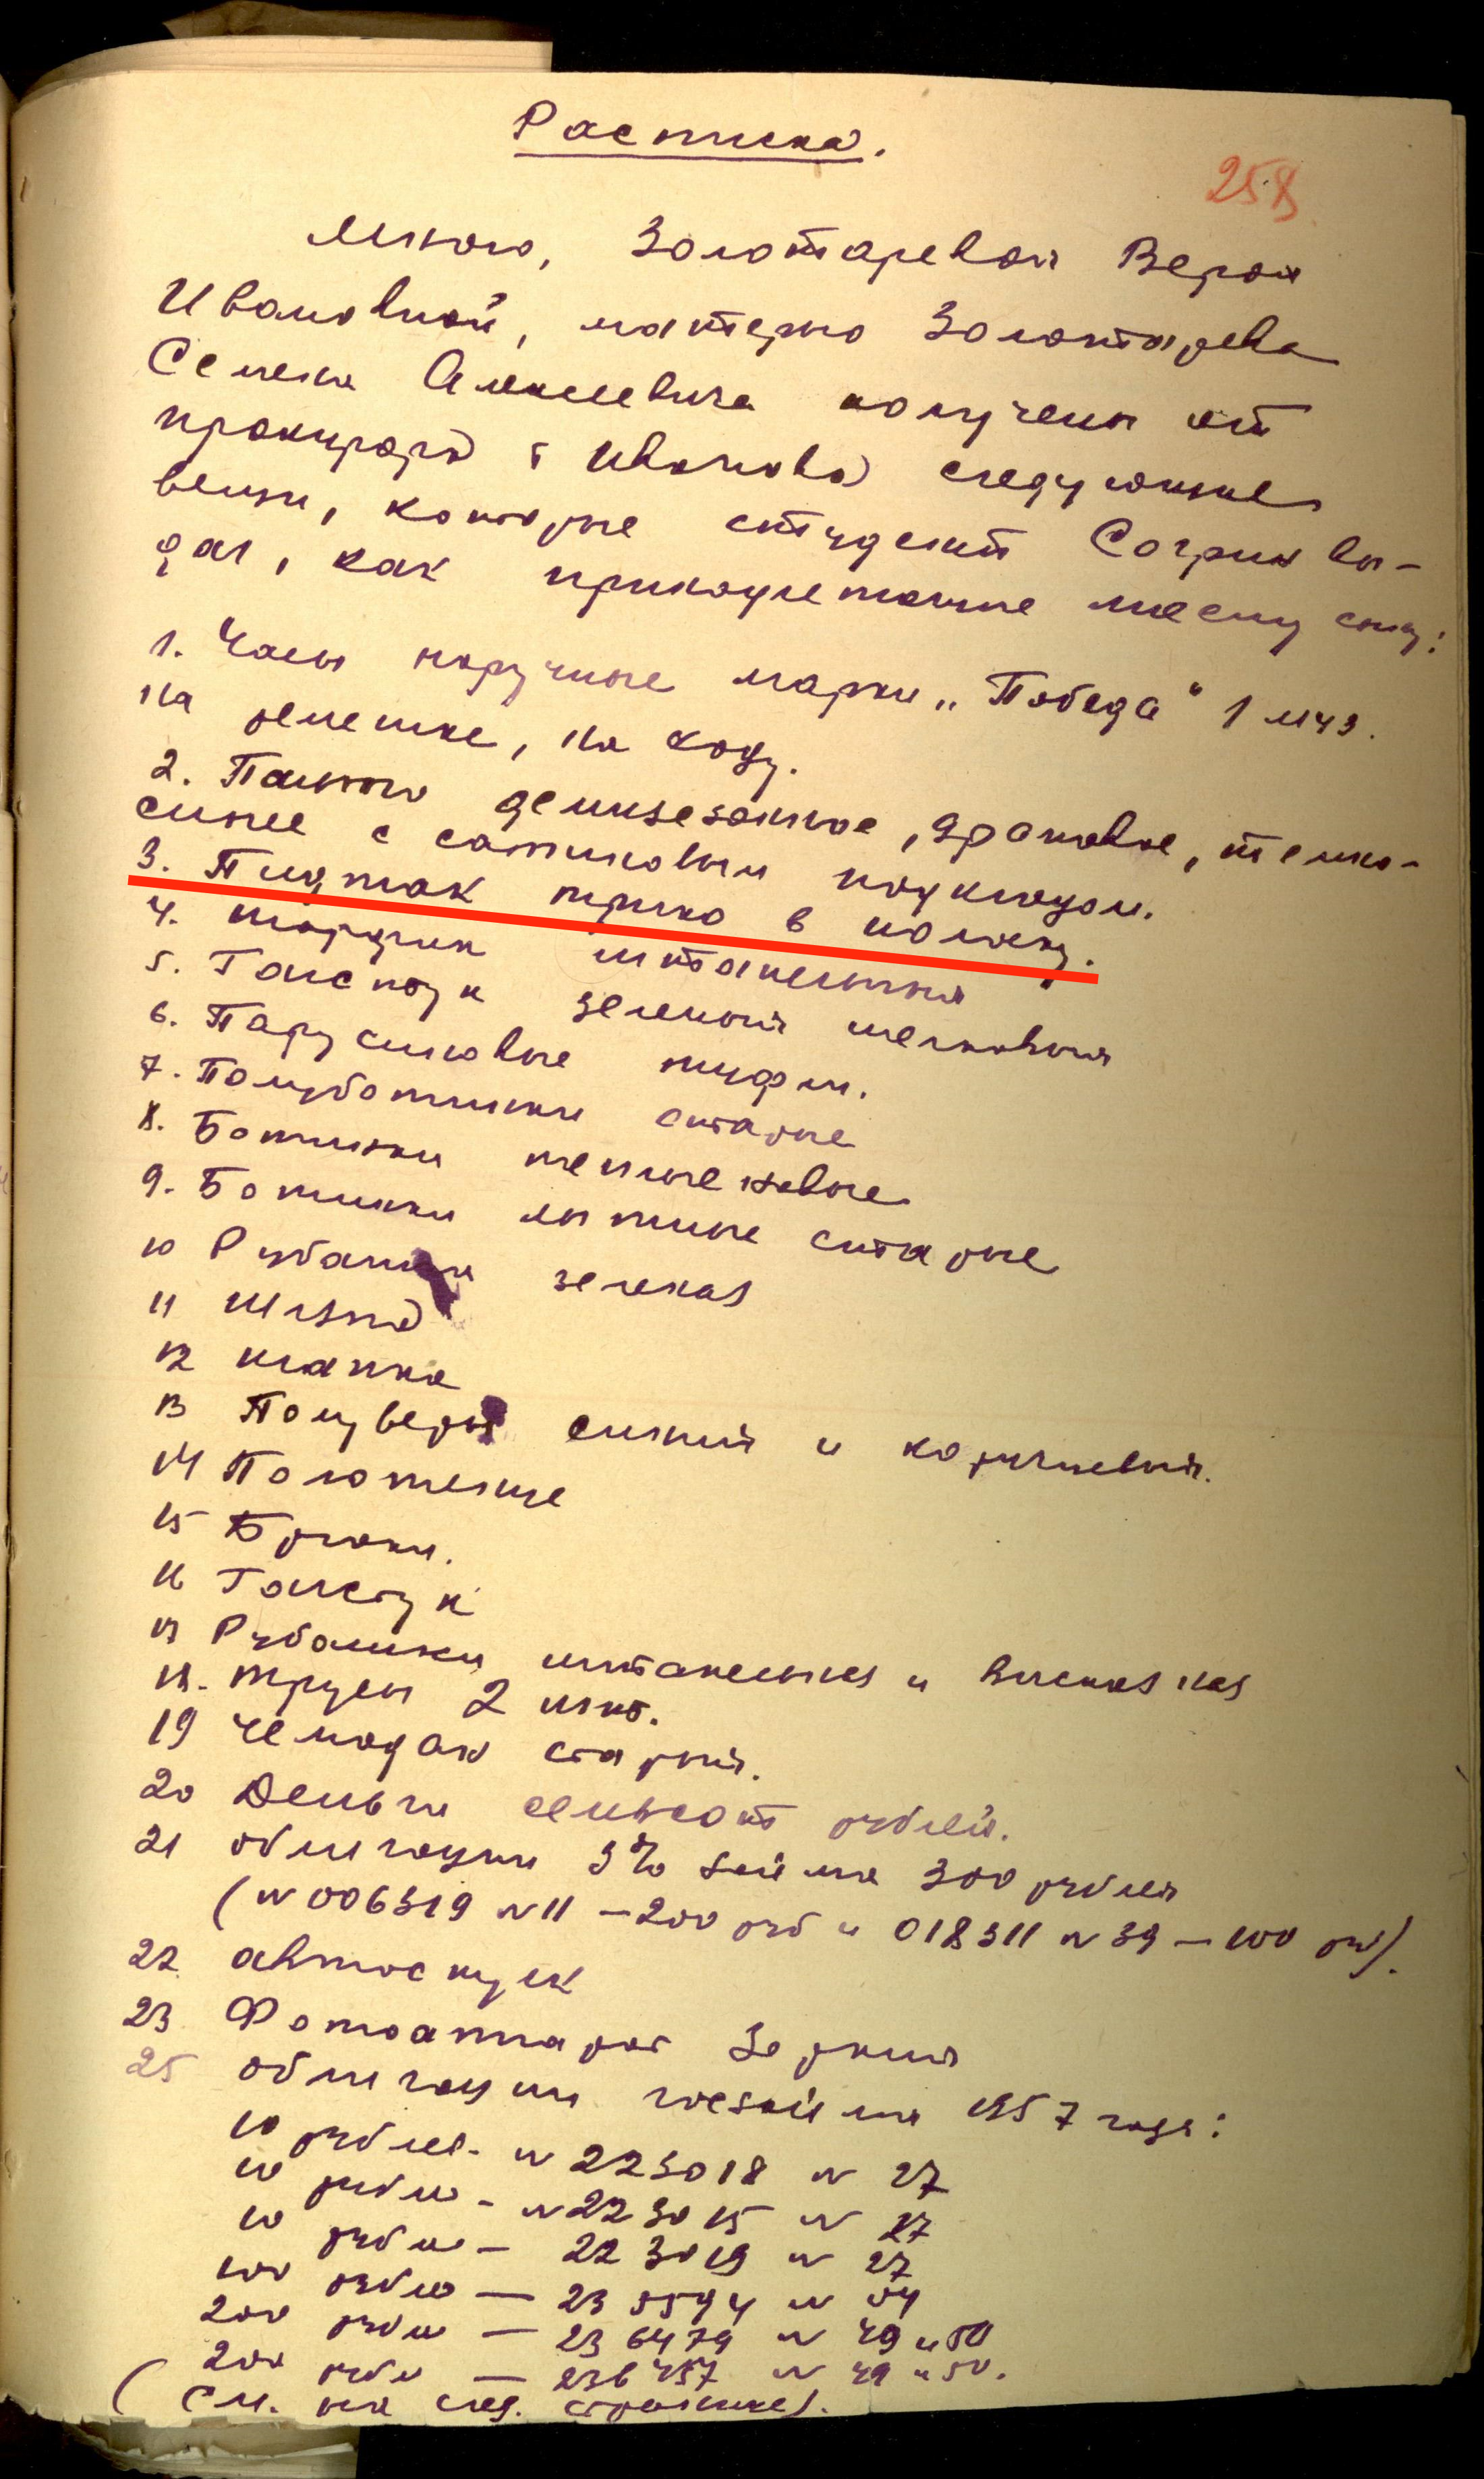 Расписка.
258
Мною, Золотаревой Верой
Ивановной, матерью Золотарева
Семена Алексеевича получены от
прокурора т Иванова следующие
вещи, которые студент Согрин вы-
дал, как принадлежащие моему сыну:
1. Часы наручные марки „Победа“ 1 мчз.
на ремешке, на ходу.
2. Пальто демисезонное, драповое, темно-
синее с сатиновым подкладом.
3. Пиджак трико в полоску.
4. шарфик штапельный
5. Галстук зеленый шелковый
6. Парусиновые туфли.
7. Полуботинки старые
8. Ботинки теплые новые
9. Ботинки лыжные старые
10 Рубашка зеленая
11 Шляпа
12 шапка
13 Полувера синий и коричневый.
14 Полотенце
15 Брюки.
16 Галстук
17 Рубашки штапельная и вискозная
18. трусы 2 шт.
19 чемодан старый.
20 Деньги семьсот рублей.
21 облигации 3% займа 300 рублей
(№ 006319 № 11 – 200 руб и 018311 № 39 – 100 ру).
22 автоспуск
23 Фотоаппарат Зоркий
25 облигации госзайма 1957 года:
10 рублей - № 223018 № 27
10 рубле - № 223015 № 27
10 рубле - 223019 № 27
100 рубле — 23 5594 № 04
200 рубле — 236479 № 49 и 50
200 рубле — 236457 № 49 и 50.
(См. на след. странице).